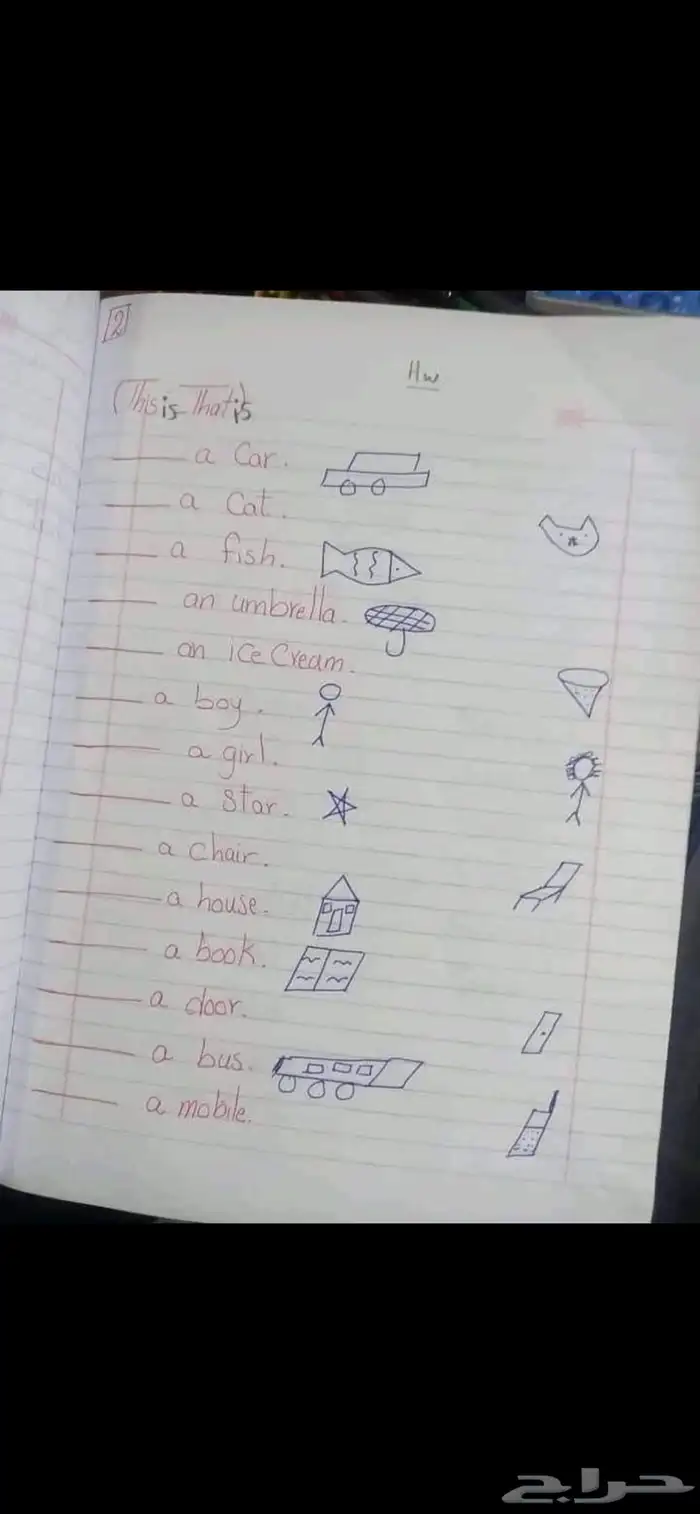 2
Hw
(This is That is)
_____ a Car.
_____ a Cat.
_____ a fish.
_____ an umbrella.
_____ an ice Cream.
_____ a boy.
_____ a girl.
_____ a star.
_____ a chair.
_____ a house.
_____ a book.
_____ a door.
_____ a bus.
_____ a mobile.
حراج